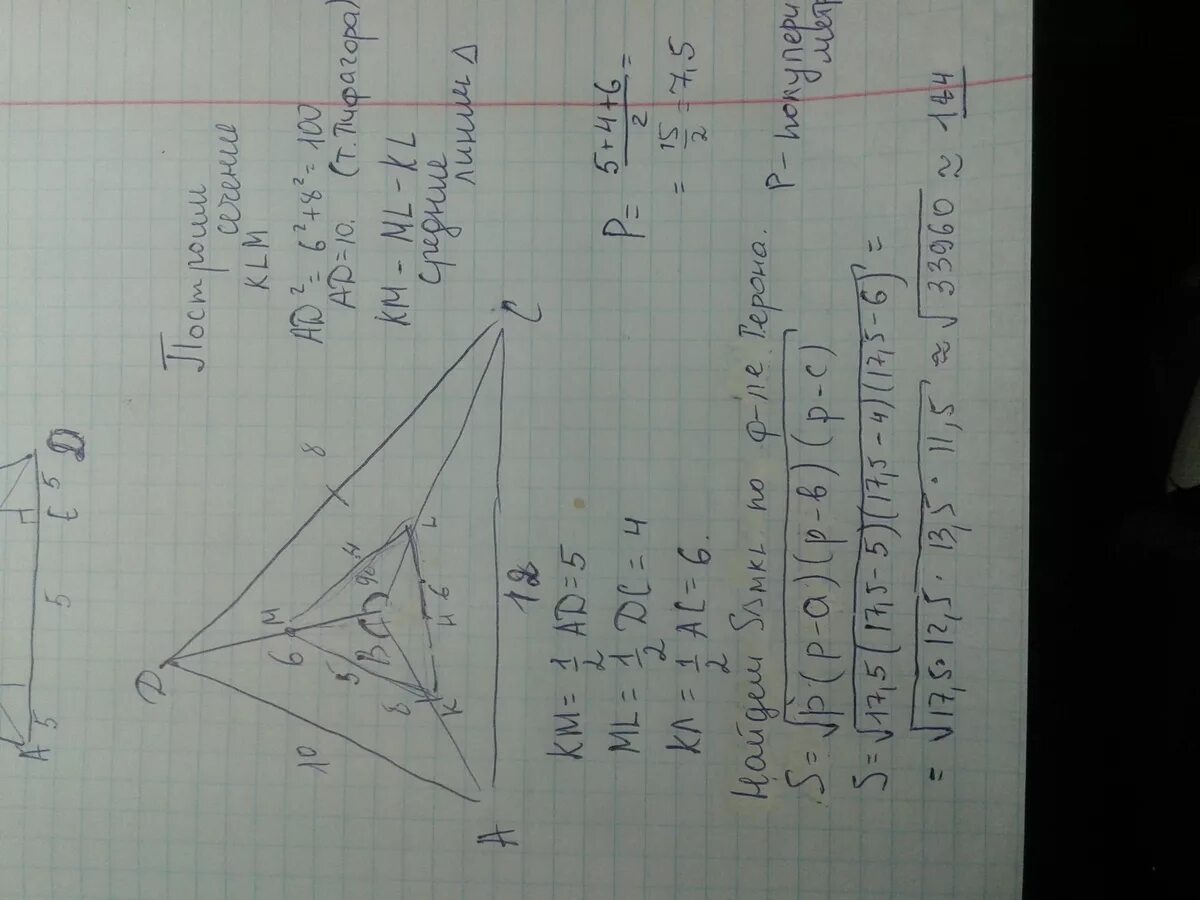 A 5 5 E 5 D
Построим
сечение
KLM
AD² = 6² + 8² = 100
AD = 10. (т. Пифагора)
KM - ML - KL
средние
линии Δ
D
10
8
6
M
4
90
5
B
8
K
H
6
L
A
12
C
KM = 1/2 AD = 5
ML = 1/2 DC = 4
KЛ = 1/2 AC = 6.
P = (5+4+6)/2 =
= 15/2 = 7,5
Найдем SΔMKL по ф-ле Герона.
S = √p(p-a)(p-b)(p-c)
P - полупери
метр
S = √17,5(17,5-5)(17,5-4)(17,5-6) =
= √17,5·12,5·13,5·11,5 ≈ √33960 ≈